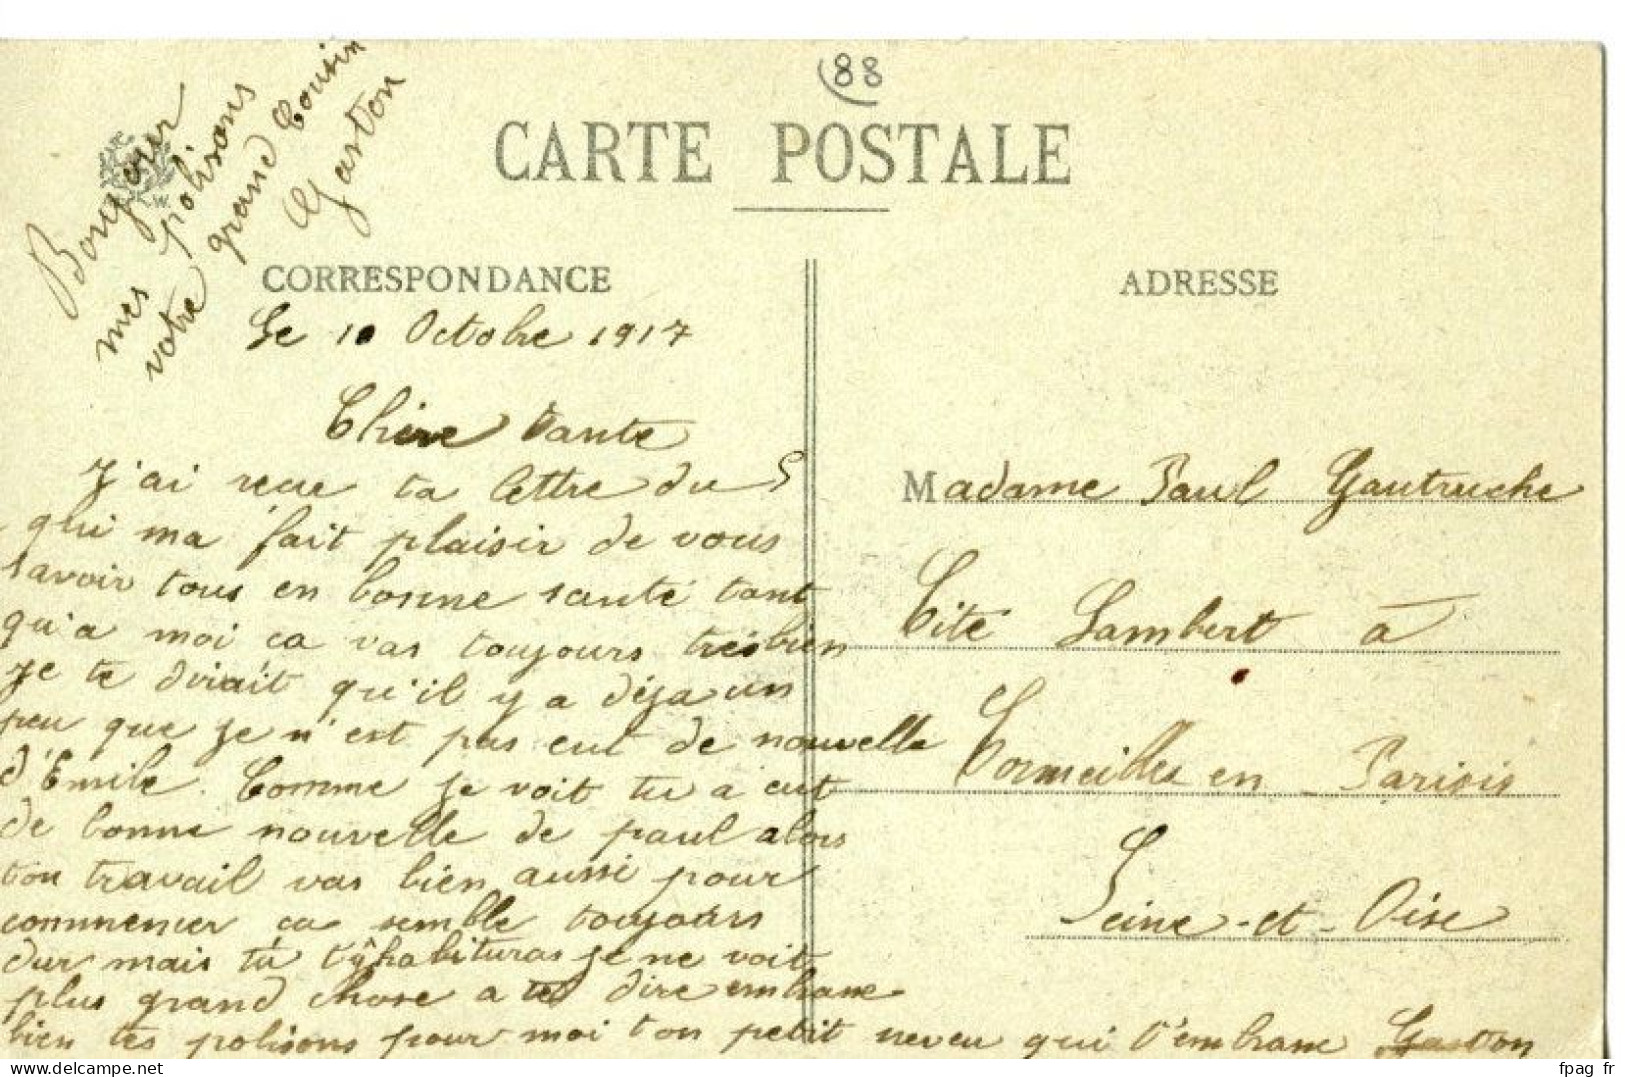 Bonjour
mes polisons
votre grand Cousin
Gaston
(88
CARTE POSTALE
CORRESPONDANCE
ADRESSE
Le 10 Octobre 1917
Chère tante
J'ai reçue ta lettre du 5
qui ma fait plaisir de vous
savoir tous en bonne santé tant
qu'a moi ca vas toujours très bien
Je te dirait qu'il y a déja un
peu que je n'est pas eut de nouvelle
d'Emile. Comme je voit tu a eut
de bonne nouvelle de paul alors
ton travail vas bien aussi pour
commencer ca semble toujours
dur mais tu t'y habituras je ne voit
plus grand chose a te dire embrasse
bien tes polisons pour moi ton petit neveu qui t'embrasse Gaston
Madame Paul Gautruche
Cité Lambert à
Cormeilles en Parisis
Seine-et-Oise
fpag fr